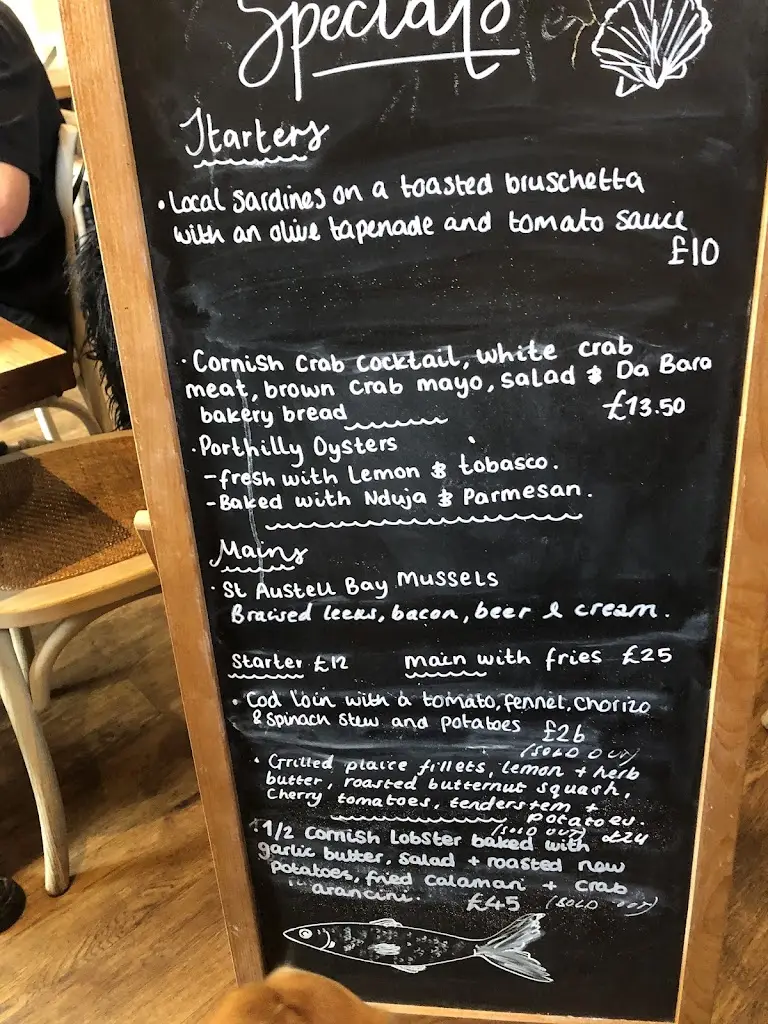 Specials
Starters
• Local Sardines on a toasted bruschetta
with an olive tapenade and tomato sauce
£10
• Cornish Crab Cocktail, white crab
meat, brown crab mayo, salad & Da Bara
bakery bread £13.50
• Porthilly Oysters
- fresh with Lemon & tobasco.
- Baked with Nduja & Parmesan.
Mains
• St Austell Bay Mussels
Braised leeks, bacon, beer & cream.
Starter £12 main with fries £25
• Cod loin with a tomato, fennel, chorizo
& spinach stew and potatoes £26
(SOLD OUT)
• Grilled plaice fillets, lemon + herb
butter, roasted butternut squash,
Cherry tomatoes, tenderstem +
potatoes.
(SOLD OUT) £24
• 1/2 Cornish Lobster baked with
garlic butter, salad + roasted new
potatoes, fried calamari + crab
arancini. £45 (SOLD OUT)